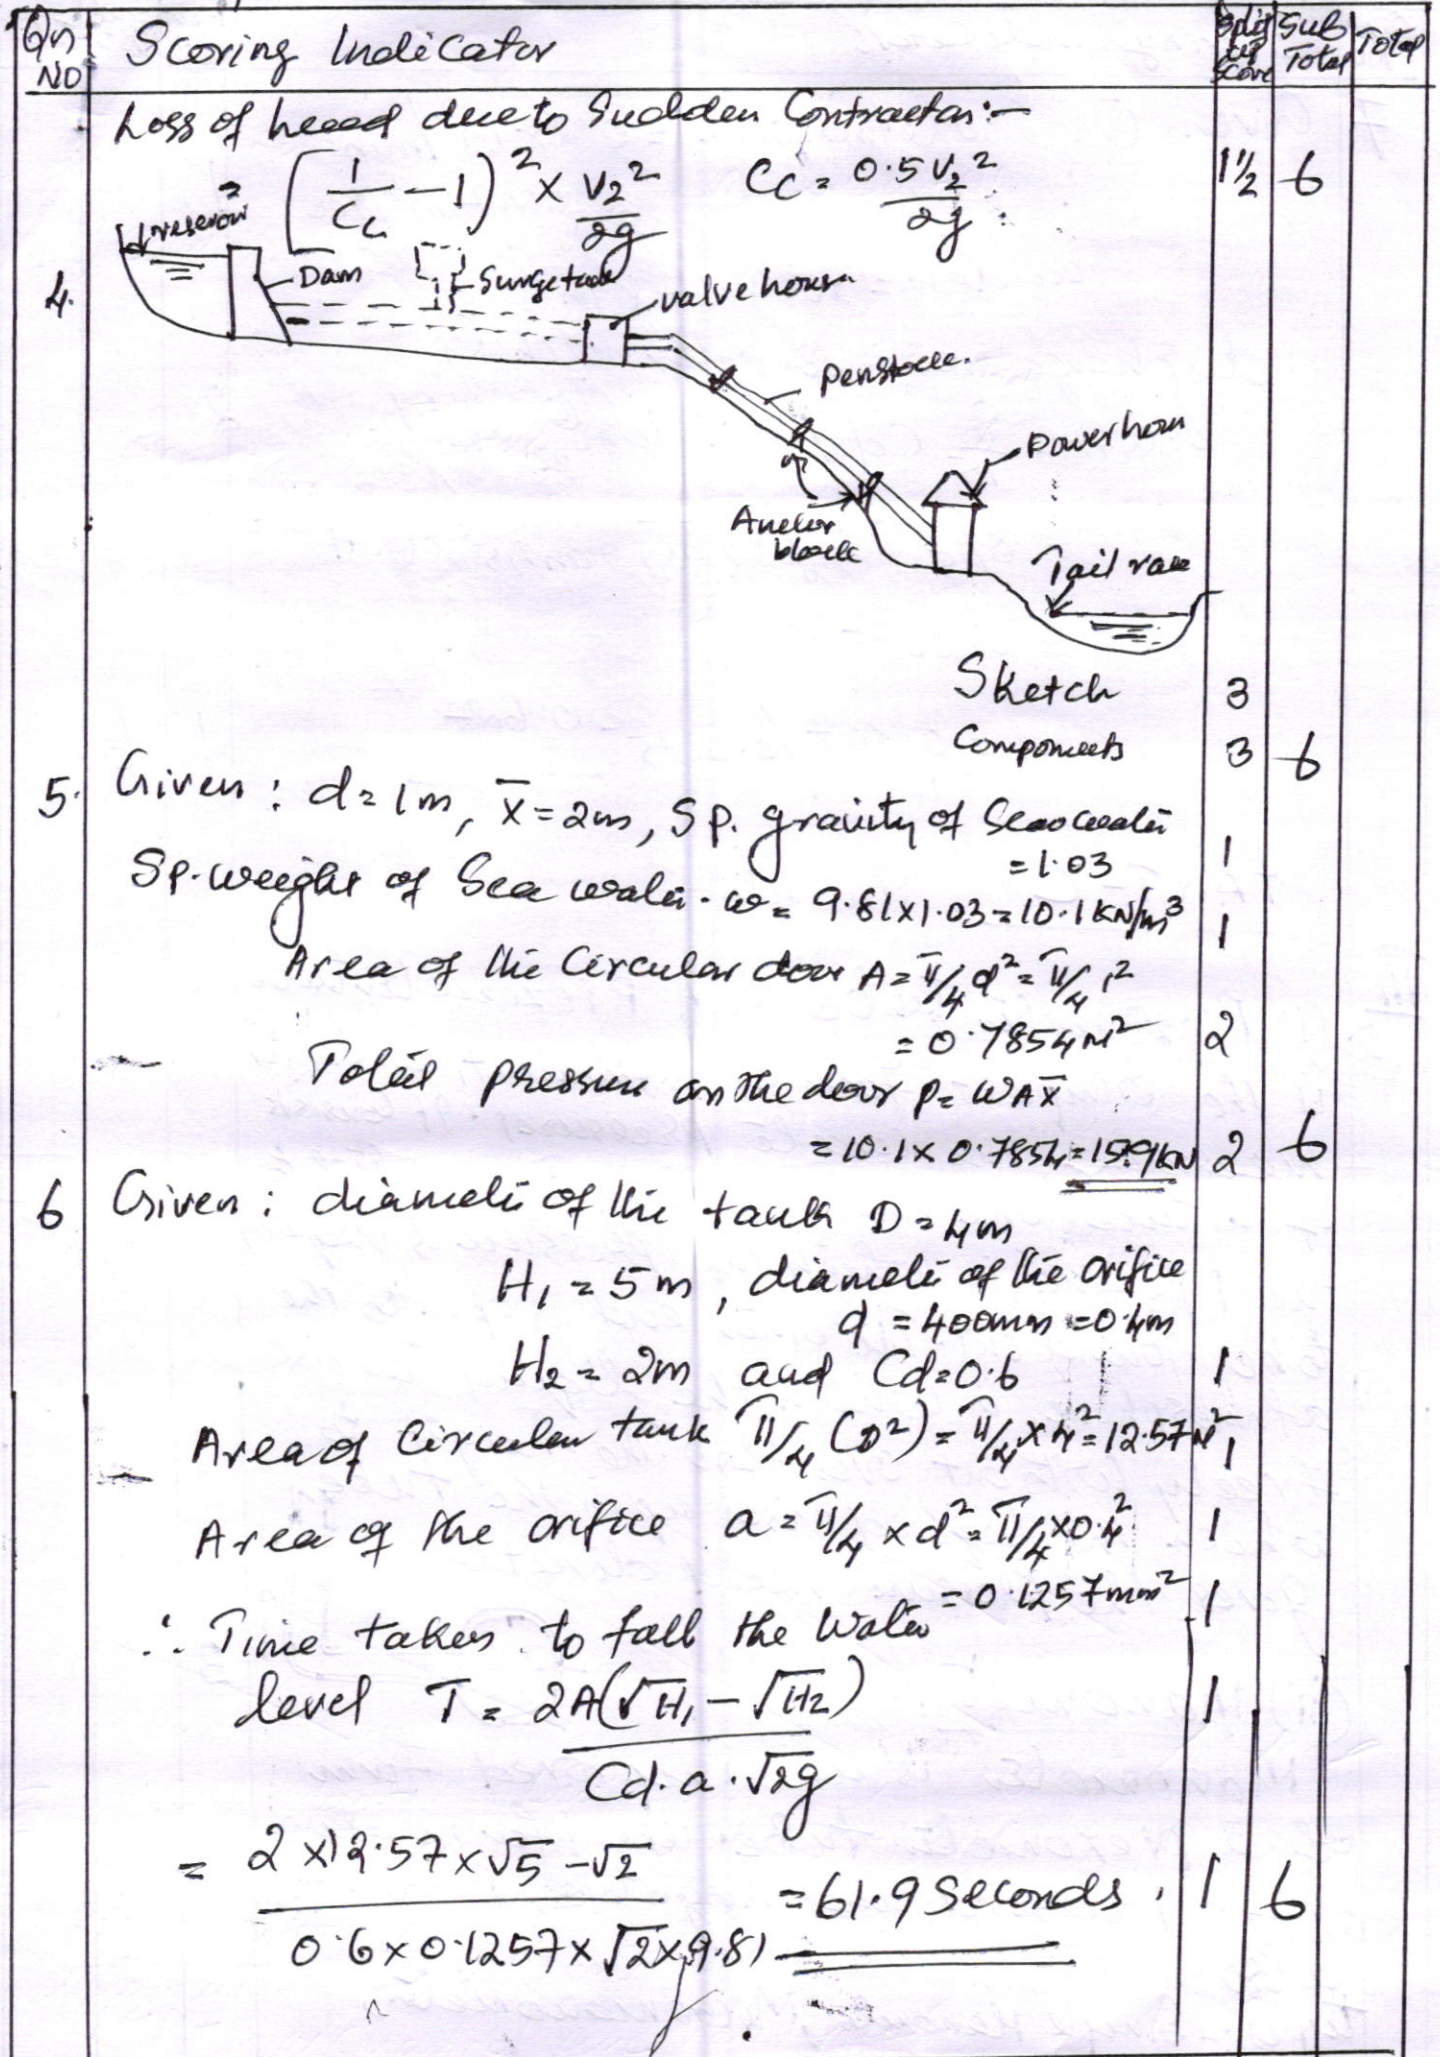 Qn No Scoring Indicator Split up Score Sub Total Total
Loss of head due to Sudden Contraction:-
= (1/Cc - 1)² × V₂²/2g Cc = 0.5V₂²/2g 1½ 6
reservoir
4. Dam Surgetank
valve house
Penstock.
Powerhouse
Anchor block
Tail race
Sketch 3
Components 3 6
5. Given : d = 1m, x̄ = 2m, Sp. gravity of Sea water
= 1.03 1
Sp. weight of Sea water. w = 9.81×1.03 = 10.1 KN/m³ 1
Area of the Circular door A = π/4 d² = π/4 1²
= 0.7854 m² 2
Total pressure on the door P = WAx̄
= 10.1 × 0.7854 = 15.9 KN 2 6
6 Given : diameter of the tank D = 4m
H₁ = 5m , diameter of the orifice
d = 400mm = 0.4m
H₂ = 2m and Cd = 0.6 1
Area of Circular tank π/4 (D²) = π/4 × 4² = 12.57 M² 1
Area of the orifice a = π/4 × d² = π/4 × 0.4² 1
= 0.1257 mm² 1
∴ Time taken to fall the Water
level T = 2A(√H₁ - √H₂) 1
Cd. a. √2g
= 2 × 12.57 × √5 - √2
0.6 × 0.1257 × √2×9.81 = 61.9 Seconds. 1 6